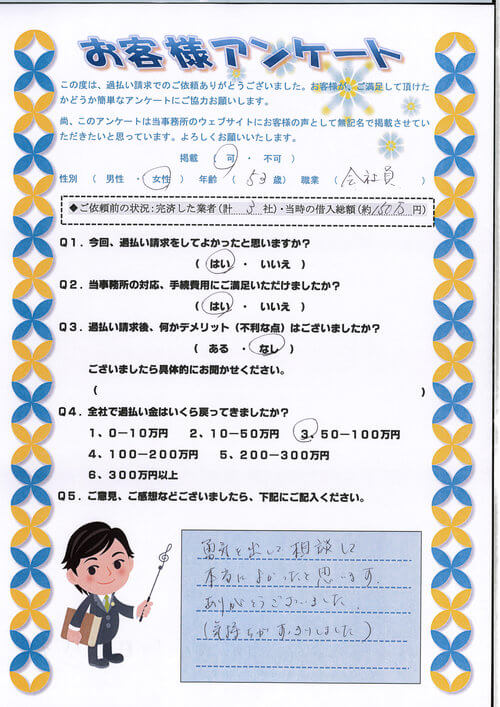 お客様アンケート
この度は、過払い請求でのご依頼ありがとうございました。お客様が、ご満足して頂けた
かどうか簡単なアンケートにご協力お願いします。
尚、このアンケートは当事務所のウェブサイトにお客様の声として無記名で掲載させてい
ただきたいと思っています。よろしくお願いいたします。
掲載 （ 可 ・ 不可 ）
性別 （ 男性 ・ 女性 ） 年齢 （ 53 歳） 職業 （ 会社員 ）
◆ご依頼前の状況：完済した業者（計 3 社）・当時の借入総額（約 150万 円）
Q1．今回、過払い請求をしてよかったと思いますか？
（ はい ・ いいえ ）
Q2．当事務所の対応、手続費用にご満足いただけましたか？
（ はい ・ いいえ ）
Q3．過払い請求後、何かデメリット（不利な点）はございましたか？
（ ある ・ なし ）
ございましたら具体的にお聞かせください。
（ ）
Q4．全社で過払い金はいくら戻ってきましたか？
1、0－10万円 2、10－50万円 3、50－100万円
4、100－200万円 5、200－300万円
6、300万円以上
Q5．ご意見、ご感想などございましたら、下記にご記入ください。
勇気を出して相談して
本当によかったと思います。
ありがとうございました。
（気持ちがすっきりしました）